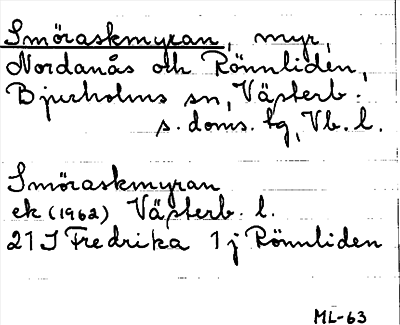 Smöraskmyran, myr,
Nordanås och Rönnliden,
Bjurholms sn, Västerb.
s. doms. tg, Vb. l.
Smöraskmyran
ek (1962) Västerb. l.
21 I Fredrika 1 j Rönnliden
ML-63